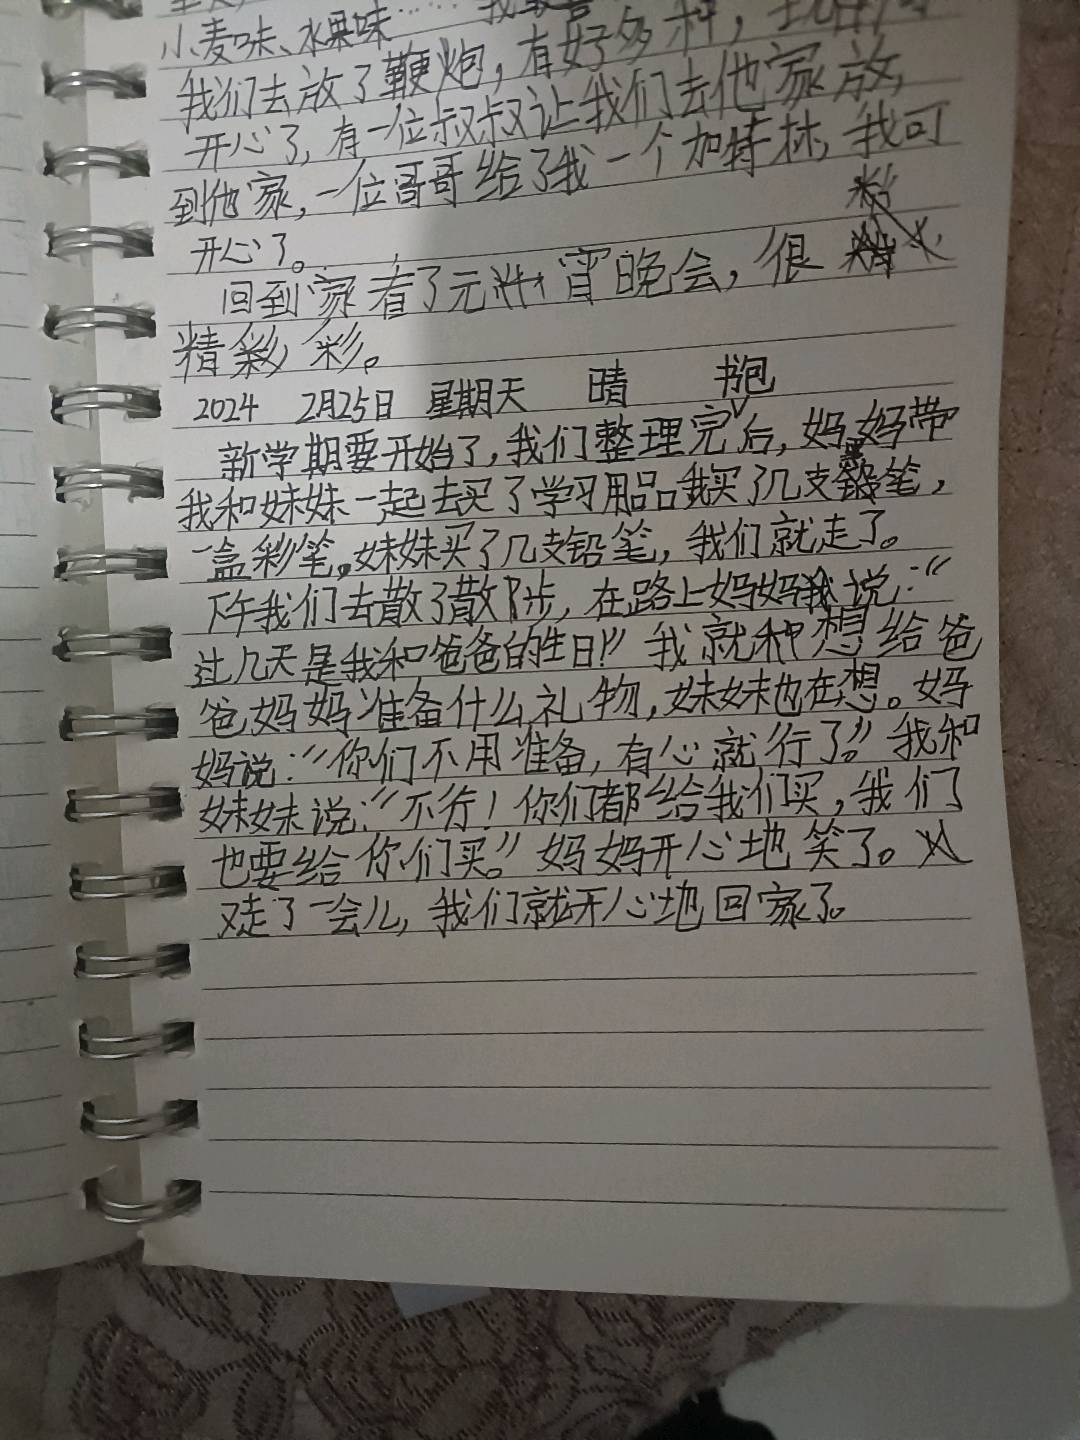 小麦味、水果味……我最喜
我们去放了鞭炮，有好多种，
开心了，有一位叔叔让我们去他家放，
到他家，一位哥哥给了我一个加特林，我可
开心了。
回到家看了元宵晚会，很
精彩。
2024 2月25日 星期天 晴 书包
新学期要开始了，我们整理完后，妈妈带
我和妹妹一起去买了学习用品我买了几支铅笔，
一盒彩笔。妹妹买了几支铅笔，我们就走了。
下午我们去散了散步，在路上妈妈说：“
过几天是我和爸爸的生日！”我就种想给爸
爸妈妈准备什么礼物，妹妹也在想。妈
妈说：“你们不用准备，有心就行了。”我和
妹妹说：“不行！你们都给我们买，我们
也要给你们买。”妈妈开心地笑了。
又走了一会儿，我们就开心地回家了。